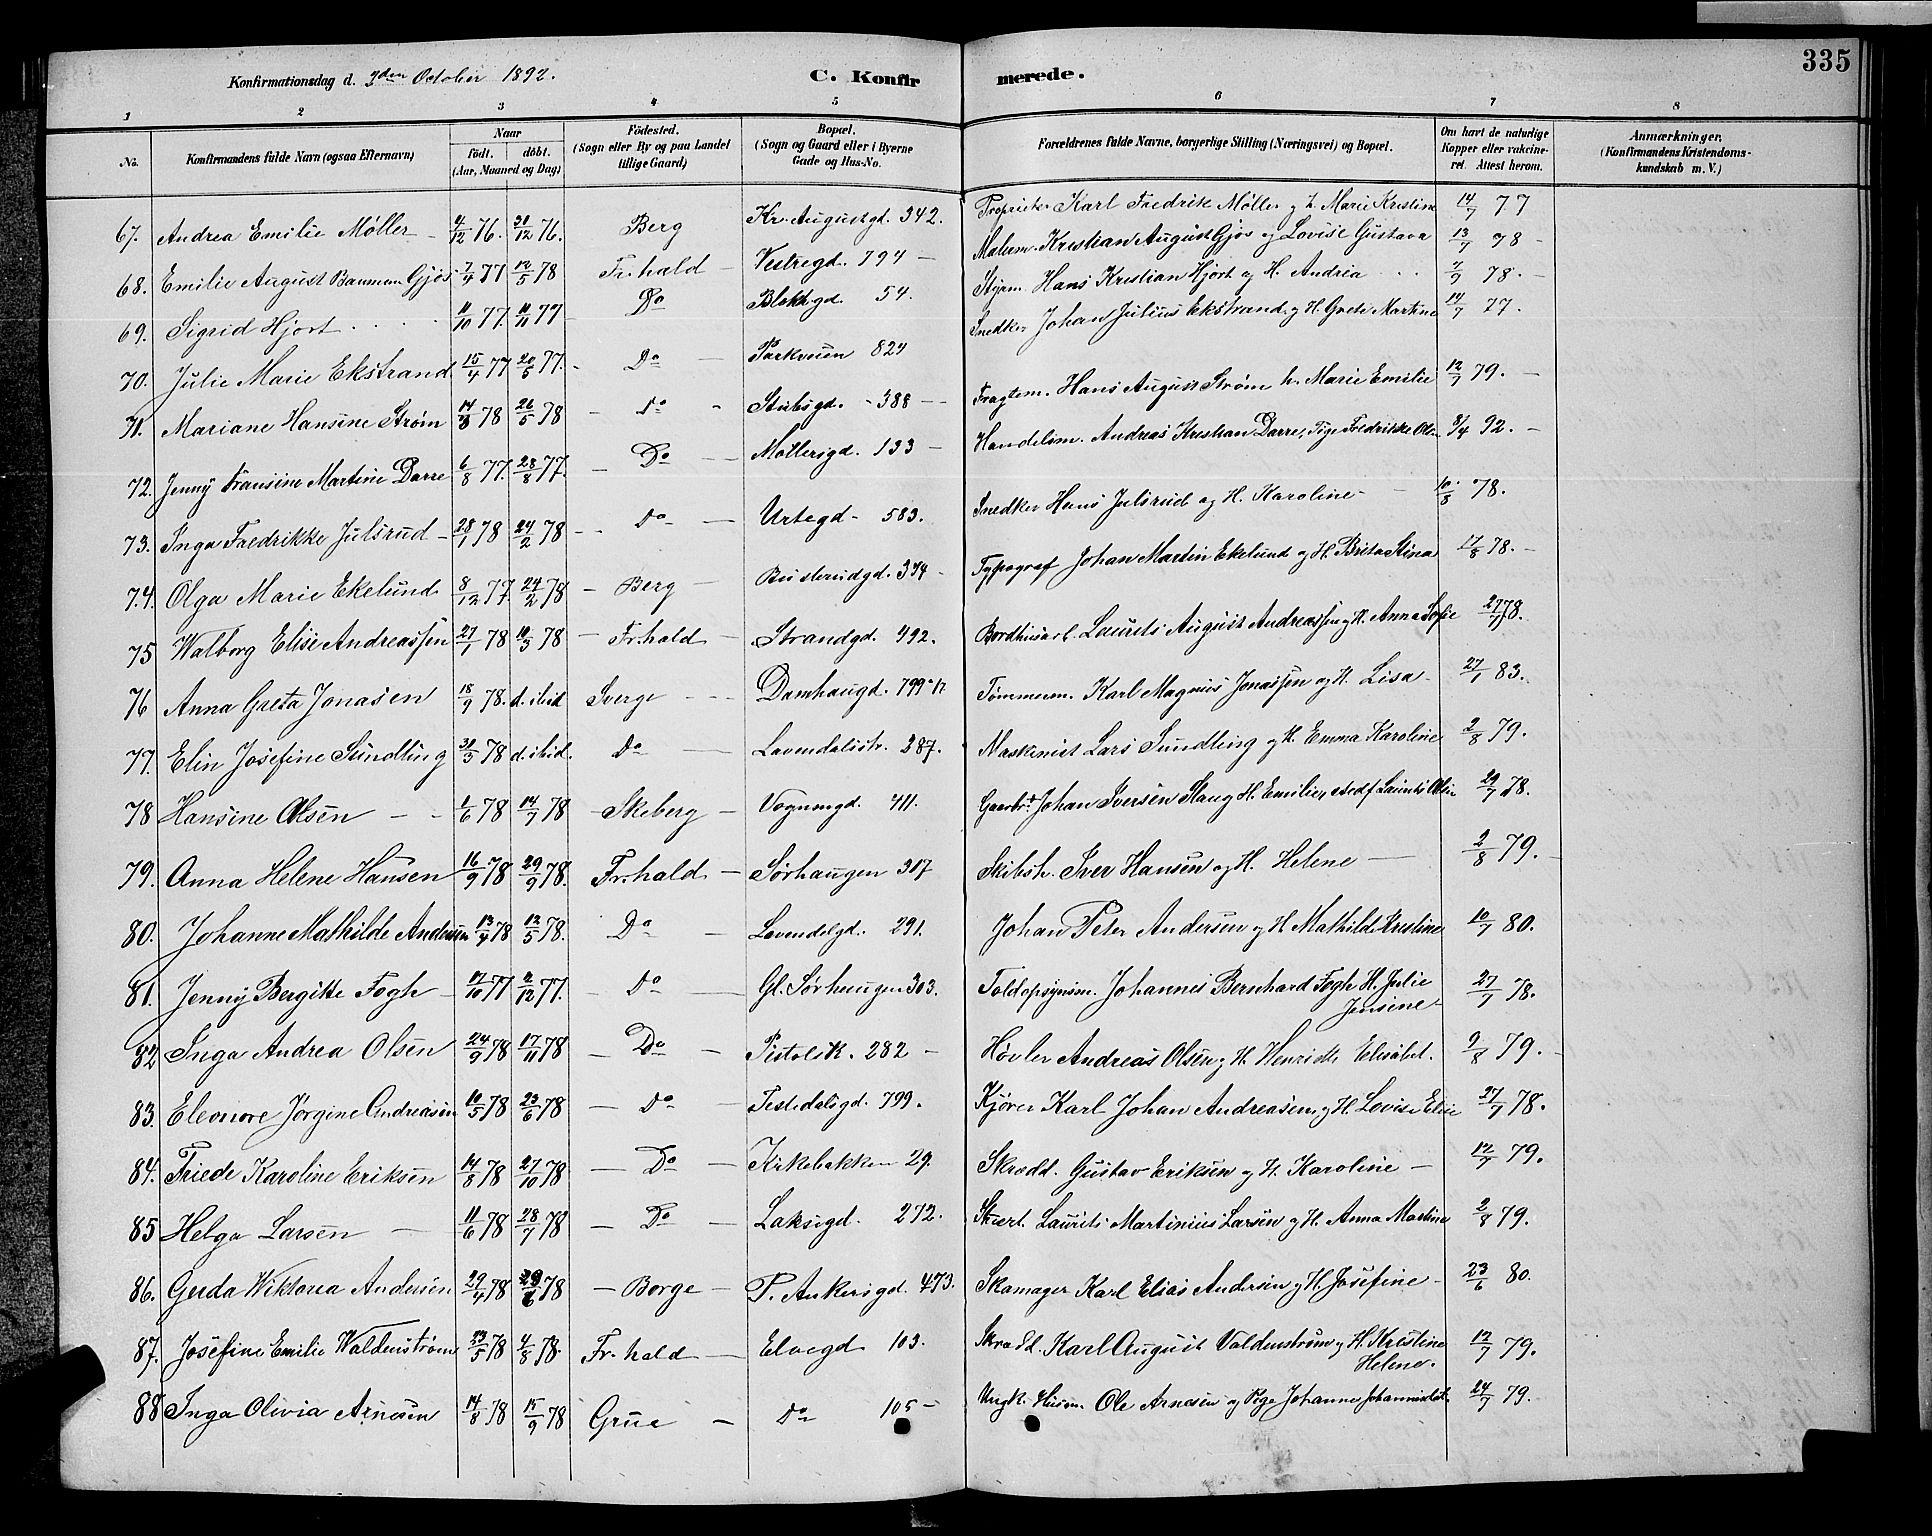 335
Konfirmationsdag d. 2den October 1892. C. Konfirmerede.
1 2 3 4 5 6 7 8
No. Konfirmandens fulde Navn (ogsaa Efternavn) Naar født. døbt. (Aar, Maaned og Dag) Födested. (Sogn eller By og paa Landet tillige Gaard) Bopæl. (Sogn og Gaard eller i Byerne Gade og Hus-No. Forældrenes fulde Navne, borgerlige Stilling (Næringsvei) og Bopæl. Om havt de naturlige Kopper eller vakcineret. Attest herom. Anmærkninger. (Konfirmandens Kristendomskundskab m. V.)
67. Andrea Emilie Møller 4/12 76. 31/12 76. Berg Kr. Augustgd. 342. Proprietr. Karl Fredrik Møller og h. Marie Kristine 14/7 77
68. Emilie August Bauman Gjøs 7/4 77 12/5 78 Fr.hald Vestregd. 794 Malerm. Kristian August Gjøs og Lovise Gustava 13/7 78
69. Sigrid Hjort 11/10 77. 11/11 77 Do Blekkgd. 54. Styrm. Hans Kristian Hjort og H. Andrea 7/9 78.
70. Julie Marie Ekstrand 15/4 77 20/5 77. Do Parkveien 824 Snedker Johan Julius Ekstrand og H. Grete Martine 14/7 77.
71. Mariane Hansine Strøm 14/3 78 26/5 78 Do Stubsgd. 388 Fragtem. Hans August Strøm h. Marie Emilie 12/7 79.
72. Jenny Fransine Martine Darre 6/8 77. 28/8 77. Do Møllersgd. 133 Handelsm. Andreas Kristian Darre, Pige Fredrikke Olsen 8/4 92.
73. Inga Fredrikke Julsrud 28/1 78 24/2 78 Do Urtegd. 583. Snedker Hans Julsrud og H. Karoline 10/8 78.
74. Olga Marie Ekelund 8/12 77. 24/2 78 Berg Busterudgd. 374 Typograf Johan Martin Ekelund og H. Brita Stina 17/8 78.
75 Walborg Elise Andreassen 27/1 78 10/3 78 Fr.hald Strandgd. 492. Bordhusarb. Laurits August Andreassen og H. Anna Sofie 27/7 78.
76 Anna Greta Jonasen 18/9 78. d. ibid Sverge Damhaugd. 799 Tømmerm. Karl Magnus Jonassen og H. Lisa 27/1 83.
77. Elin Josefine Sundling 31/3 78 d. ibid. Do Lavendelstr. 287. Maskinist Lars Sundling og H. Emma Karoline 2/8 79.
78 Hansine Olsen 1/6 78 14/7 78 Skeberg Vognmgd. 411. Gaardbr. Johan Iversen Haug H. Emilie, Laurits Olsen 29/7 78.
79. Anna Helene Hansen 16/9 78 29/9 78. Fr.hald Sørhaugen 307 Skibsh. Iver Hansen og H. Helene 2/8 79.
80. Johanne Mathilde Andersen 13/4 78 12/5 78. Do Lavendelgd. 291. Johan Peter Andersen og H Mathilde Kristine 10/7 80.
81. Jenny Bergitte Fogh 17/10 77 11/12 77. Do Gl. Sørhaugen 303. Toldopsynsm. Johannes Bernhard Fogh H. Julie Jensine 27/7 78.
82 Inga Andrea Olsen 24/9 78 17/11 78 Do Pistolsk. 282 Høvler Andreas Olsen og H. Henriette Elisabet. 9/8 79.
83. Eleonore Jørgine Andreasen 10/5 78 23/6 78 Do Tistedalsgd. 799. Kjører Karl Johan Andreasen og H. Lovise Elise 27/7 78.
84. Friede Karoline Eriksen 14/8 78 27/10 78 Do Kirkebakken 29. Skrædd. Gustav Eriksen og H. Karoline 12/7 79.
85 Helga Larsen 11/6 78 28/7 78 Do Laksegd. 272. Skuert. Laurits Martinius Larsen og H. Anna Martine 2/8 79.
86. Gerda Wiktoria Andersen 29/4 78 29/6 78 Borge P. Ankersgd. 473. Skomager Karl Elias Andersen og H. Josefine 23/6 80.
87. Josefine Emilie Waldenstrøm 23/5 78 4/8 78. Fr.hald Elvegd 103. Skrædd. Karl August Valdenstrøm og H. Kristine Helene. 12/7 79.
88 Inga Olivia Arnesen 14/8 78 15/9 78 Grue Do 105 Ungk. Husm. Ole Arnesen og Pige Johanne Johannesdat. 24/7 79.